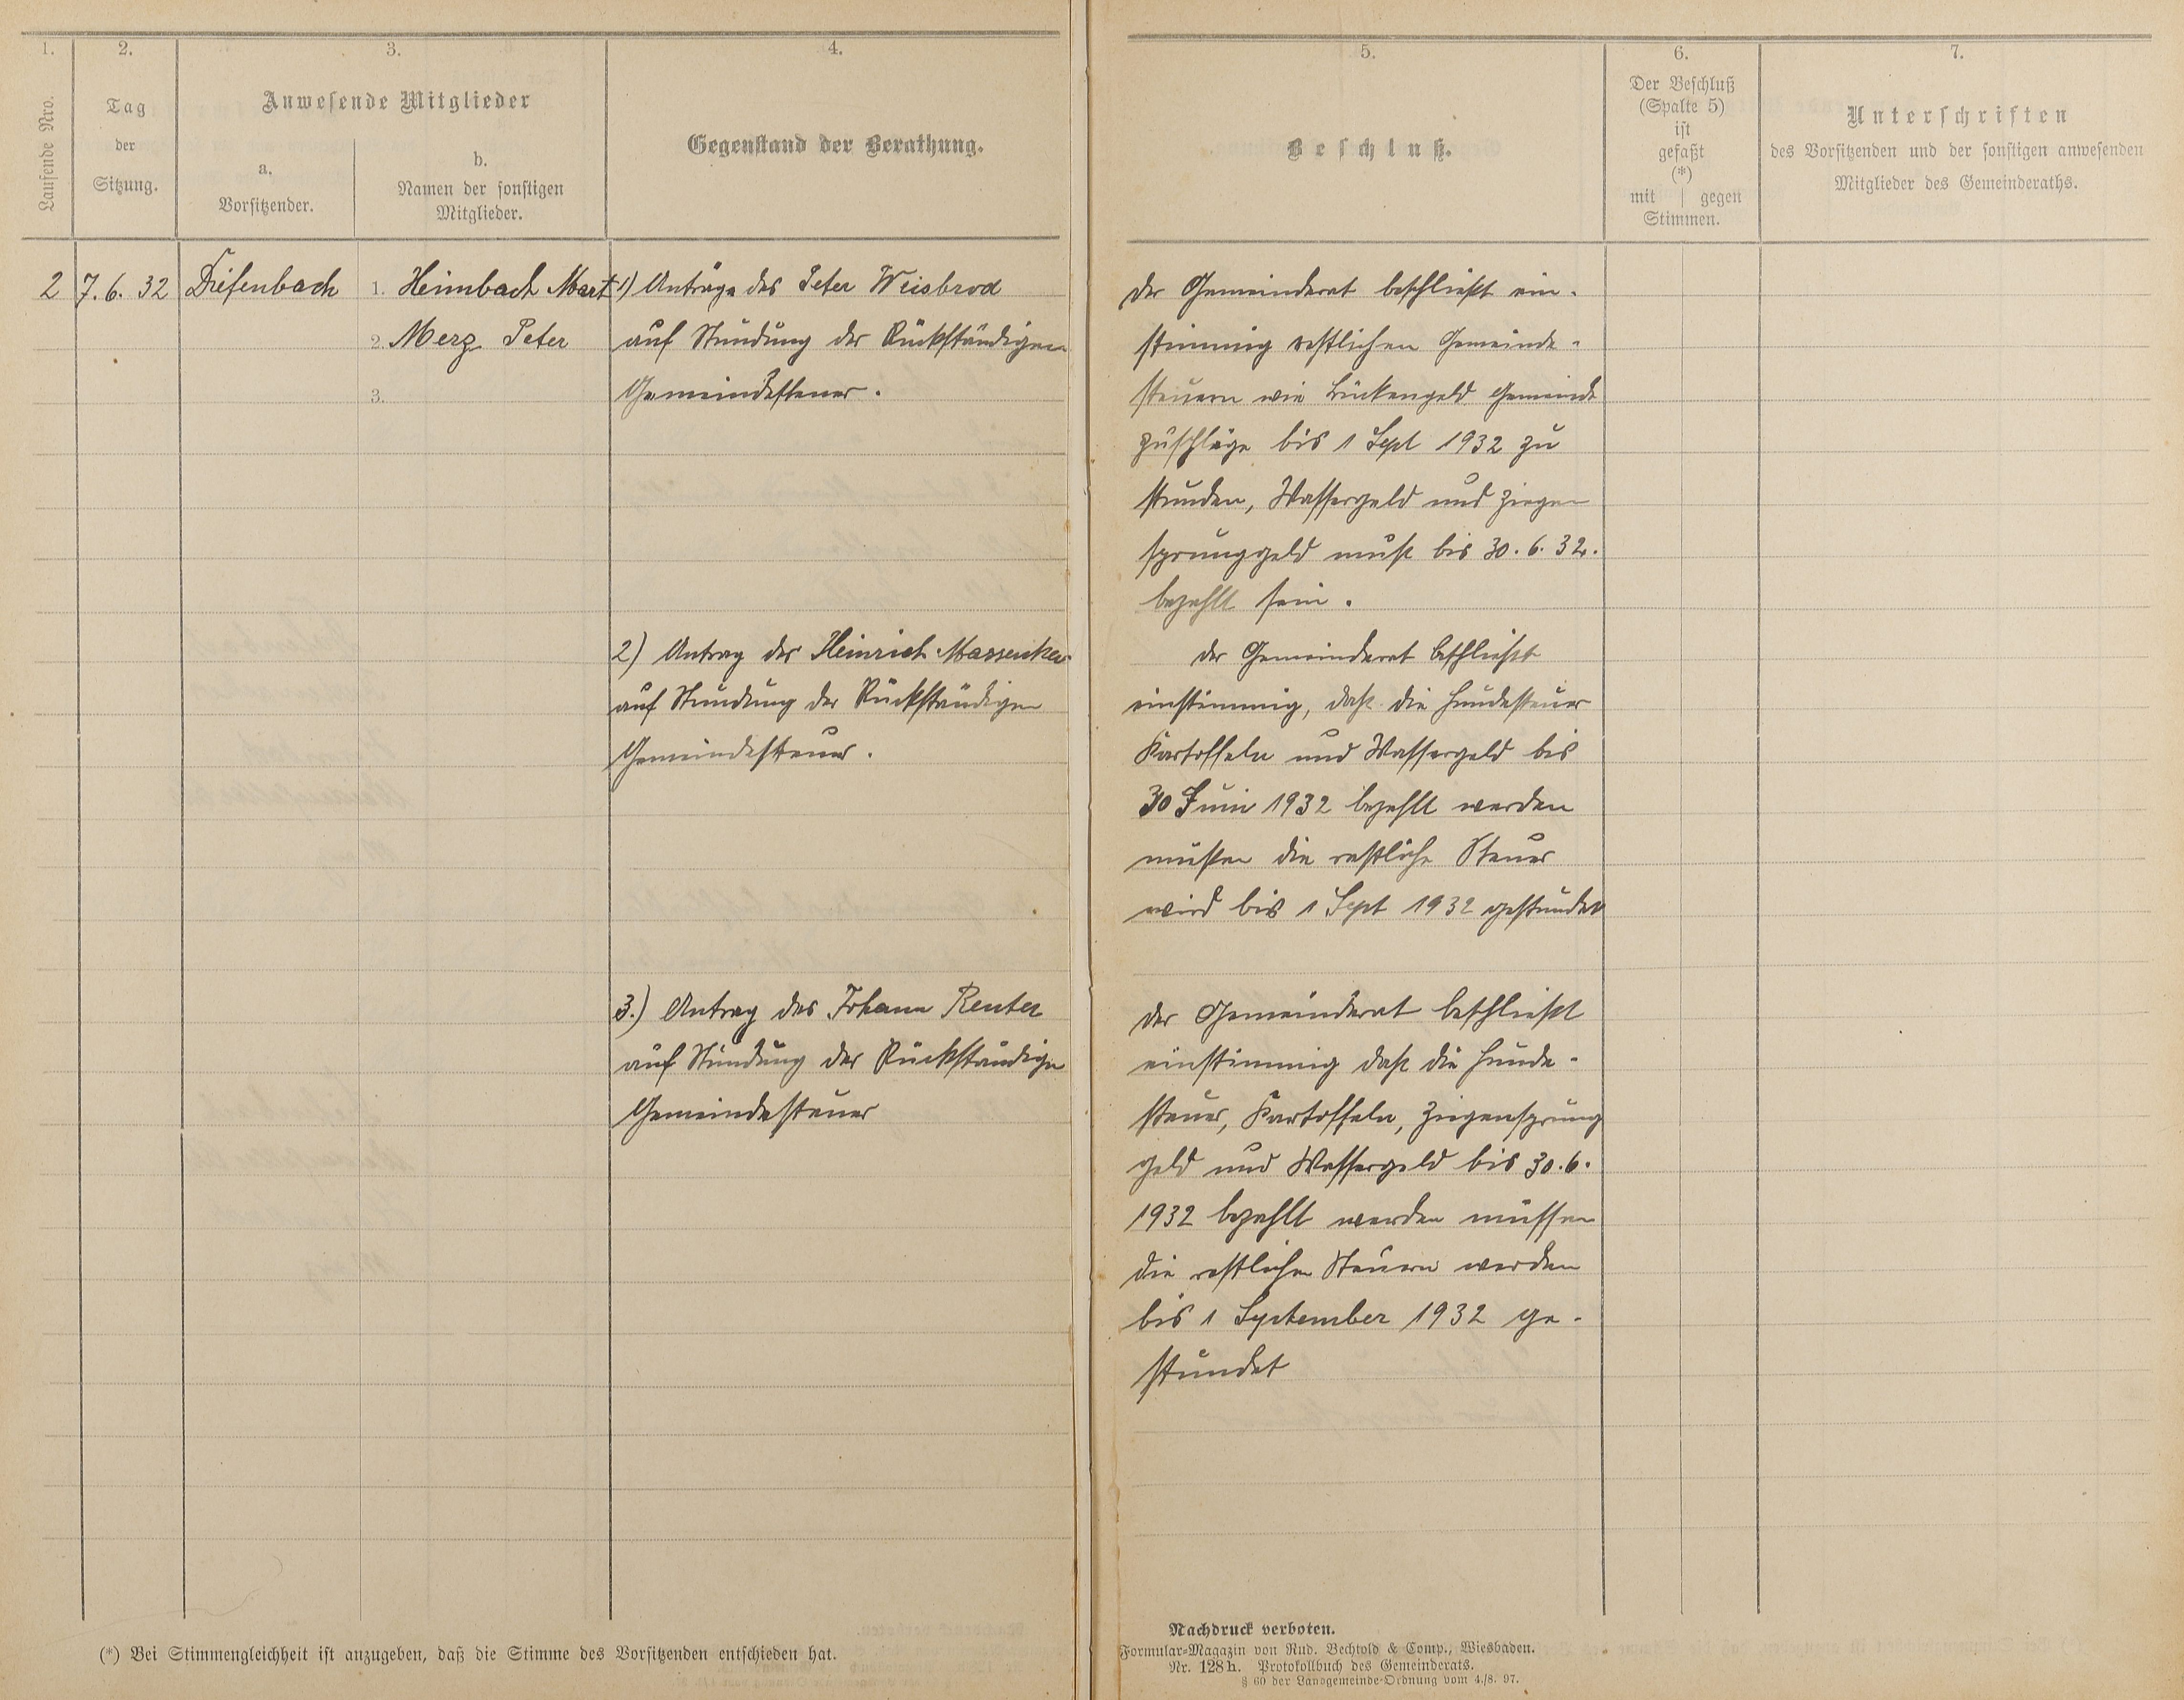 1.
2.
3.
4.
Laufende Nro.
Tag
der
Sitzung.
Anwesende Mitglieder
a.
Vorsitzender.
b.
Namen der sonstigen
Mitglieder.
Gegenstand der Berathung.
2 7.6.32 Diefenbach 1. Heimbach Mart 1) Anträge des Peter Weisbrod
2. Merz Peter auf Stundung der Rückständigen
3. Gemeindesteuer.
2) Antrag des Heinrich Massenkeil
auf Stundung der Rückständigen
Gemeindesteuer.
3.) Antrag des Johann Reuter
auf Stundung der Rückständigen
Gemeindesteuer
(*) Bei Stimmengleichheit ist anzugeben, daß die Stimme des Vorsitzenden entschieden hat.
5.
6.
7.
Beschluß.
Der Beschluß
(Spalte 5)
ist
gefaßt
(*)
mit | gegen
Stimmen.
Unterschriften
des Vorsitzenden und der sonstigen anwesenden
Mitglieder des Gemeinderaths.
der Gemeinderat beschließt ein-
stimmig restlichen Gemeinde-
steuern wie Lückengeld Gemeinde
zuschläge bis 1 Sept 1932 zu
stunden, Wassergeld und Ziegen
sprunggeld muß bis 30.6.32.
bezahlt sein.
der Gemeinderat beschließt
einstimmig, daß die Hundesteuer
Kartoffeln und Wassergeld bis
30 Juni 1932 bezahlt werden
müßen die restliche Steuer
wird bis 1 Sept 1932 gestundet
der Gemeinderat beschließt
einstimmig daß die Hunde-
steuer, Kartoffeln, Ziegensprung
geld und Wassergeld bis 30.6.
1932 bezahlt werden müssen
die restlichen Steuern werden
bis 1 September 1932 ge-
stundet
Nachdruck verboten.
Formular-Magazin von Rud. Bechtold & Comp., Wiesbaden.
Nr. 128h. Protokollbuch des Gemeinderats.
§ 60 der Landgemeinde-Ordnung vom 4./8. 97.